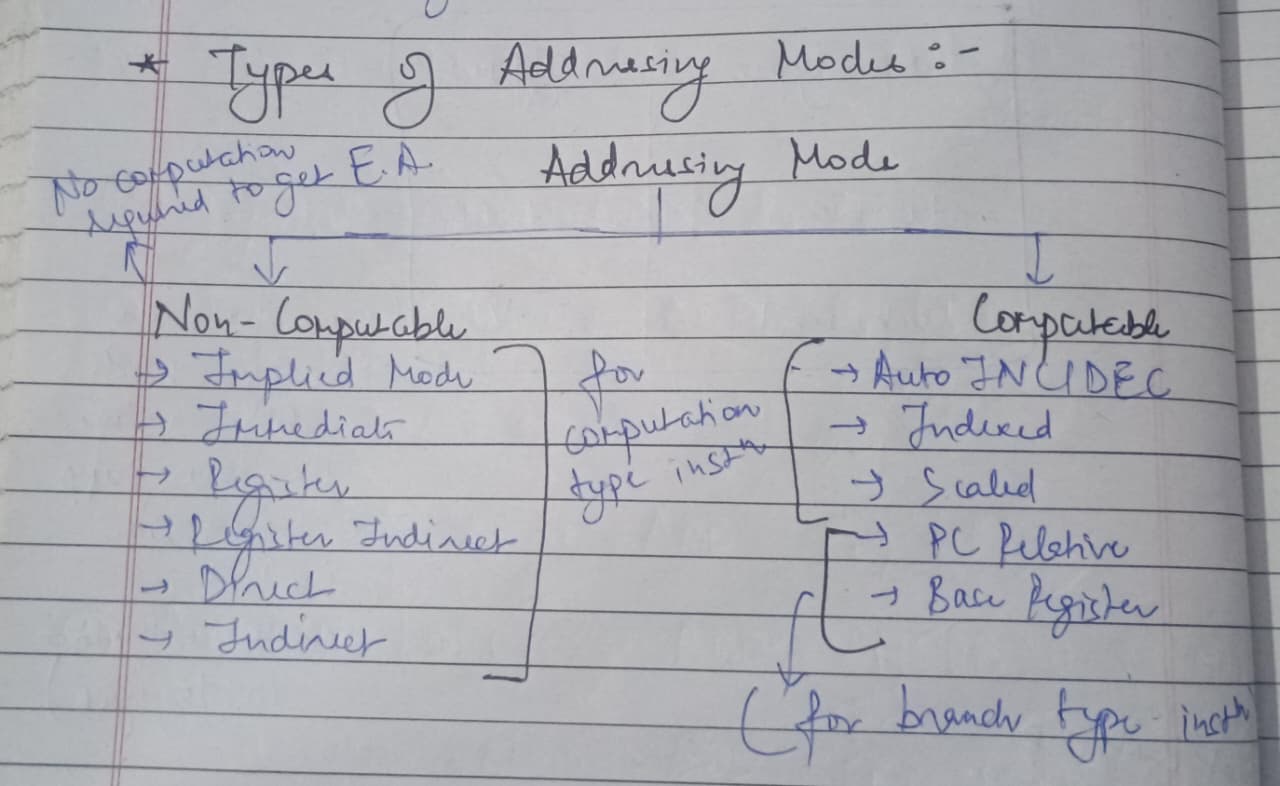 * Types of Addressing Modes :-
Addressing Mode
No computation
required to get E.A.
Non-Computable
→ Implied Mode
→ Immediate
→ Register
→ Register Indirect
→ Direct
→ Indirect
for
computation
type instn
Computable
→ Auto INC/DEC
→ Indexed
→ Scaled
→ PC Relative
→ Base Register
(for branch type instn